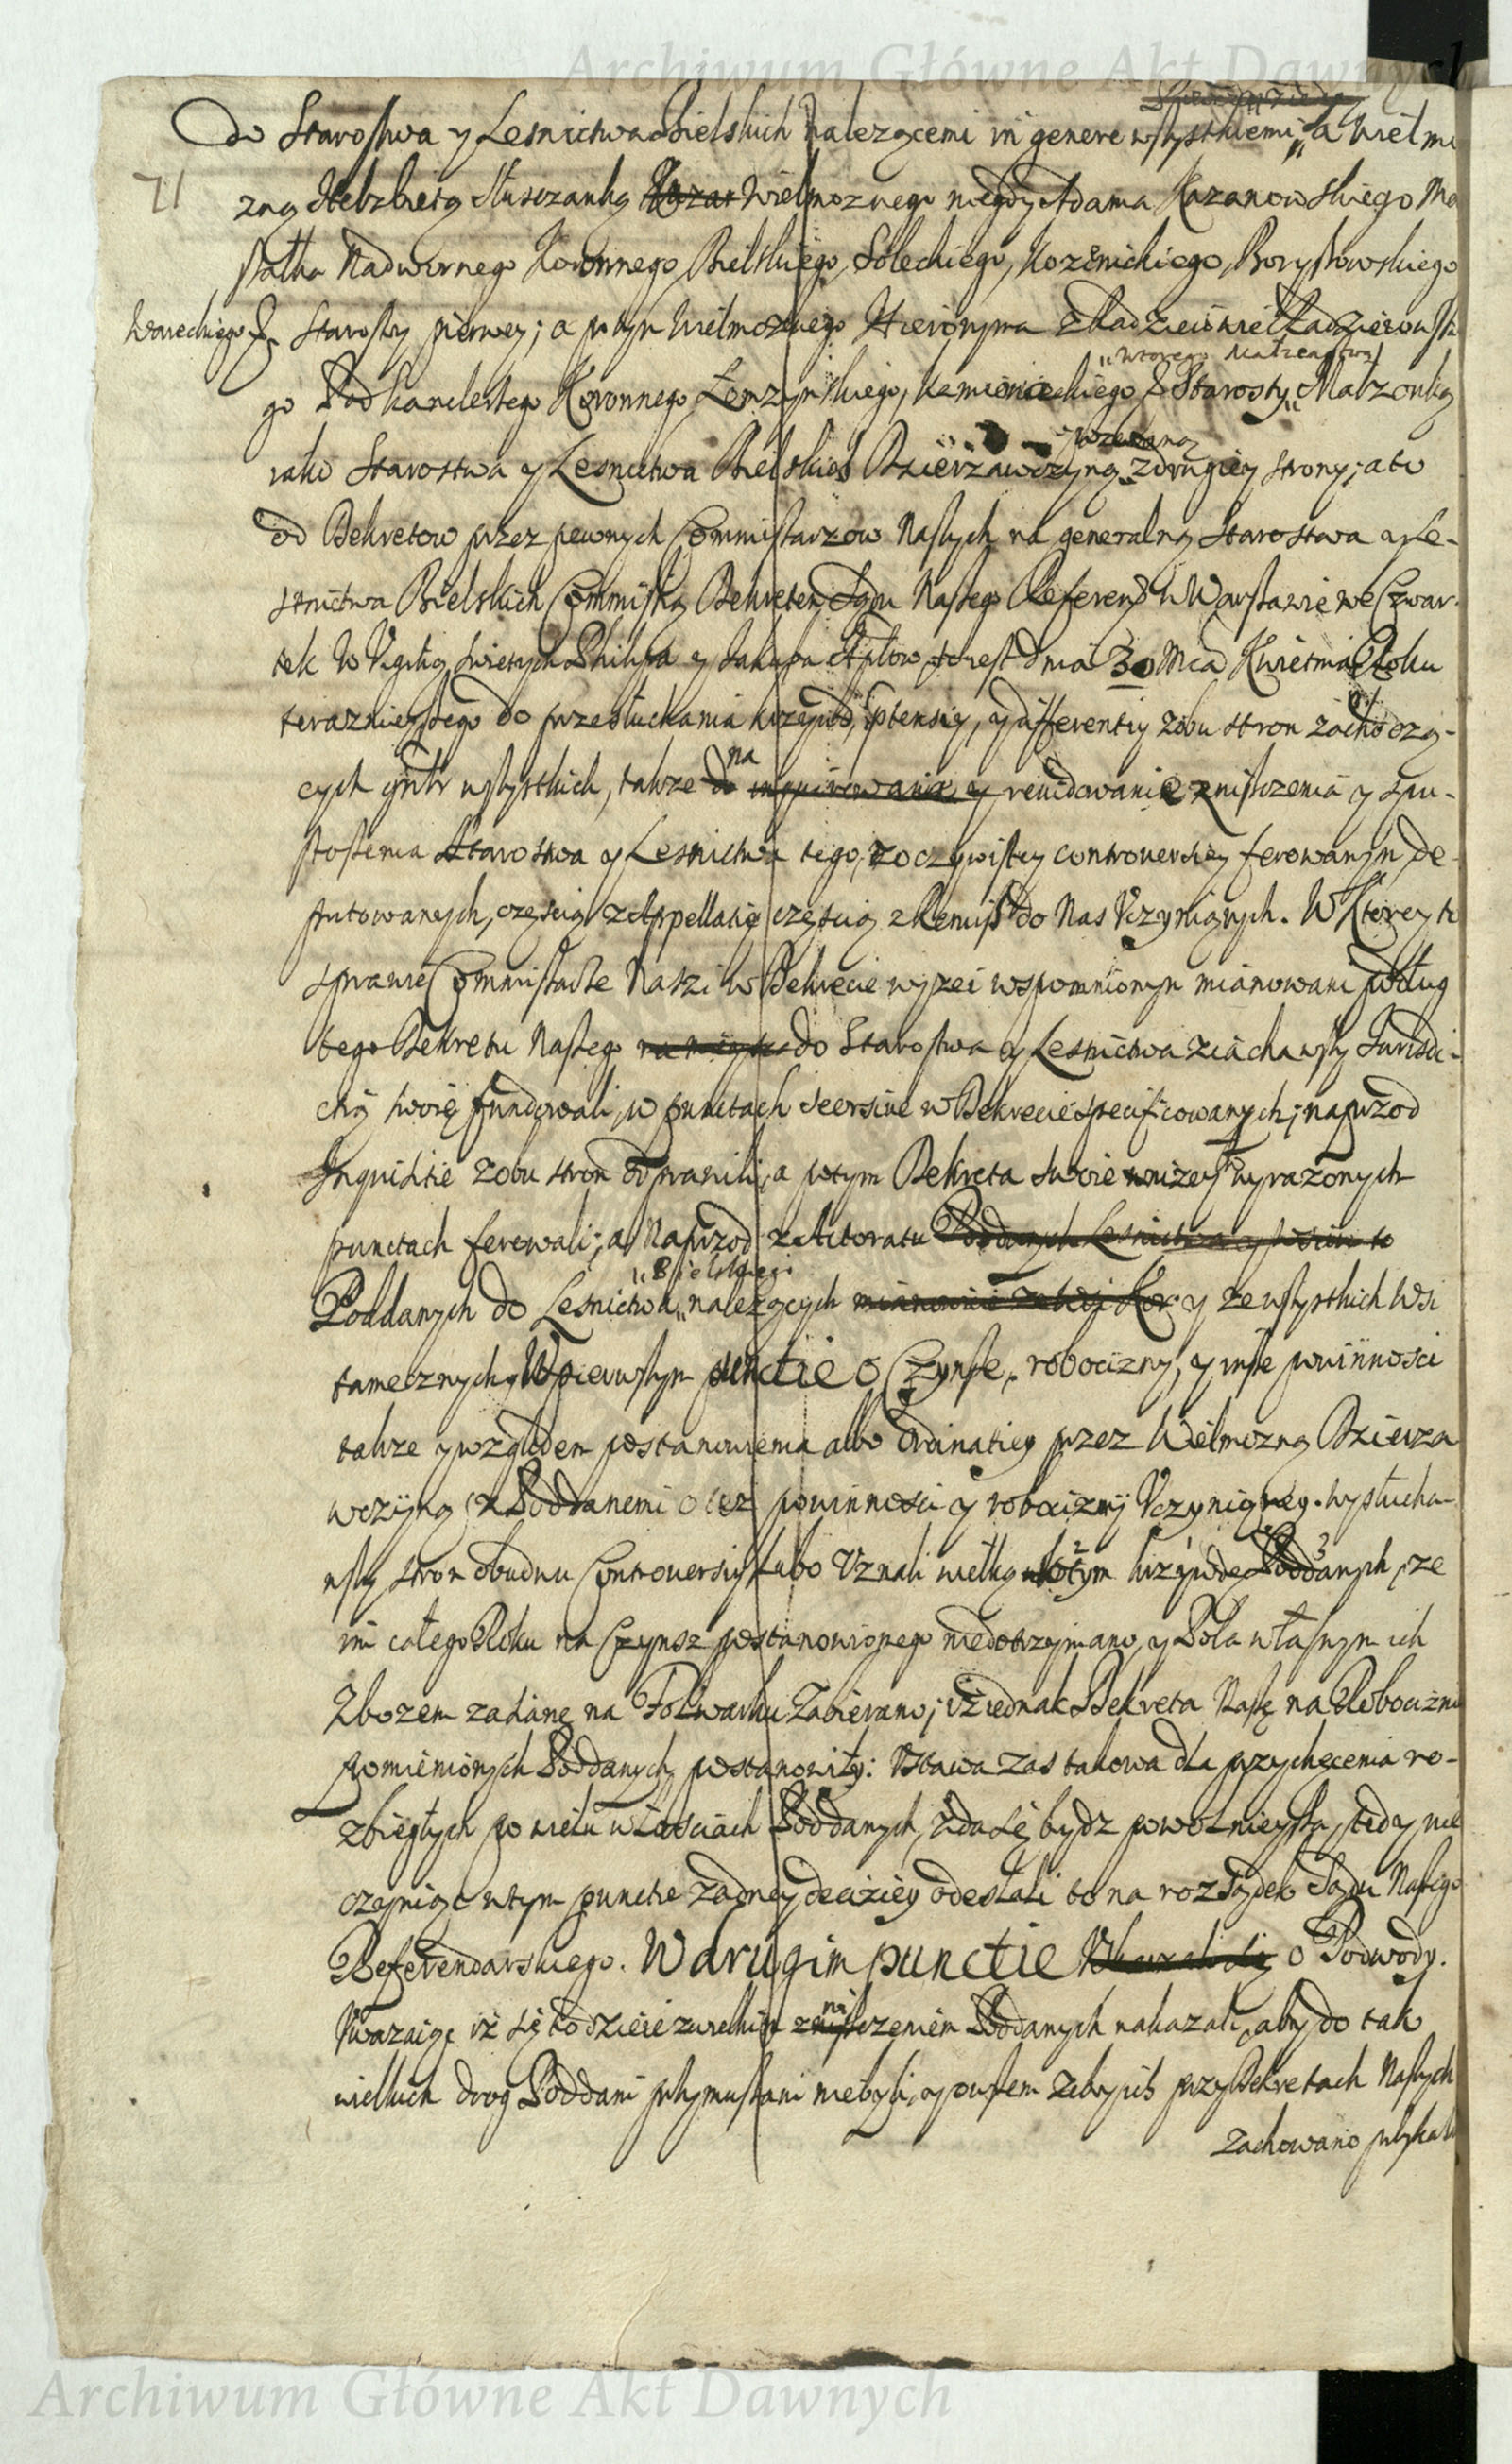 Archiwum Główne Akt Dawnych
1
do Starostwa y Lesnictwa Bielskich nalezącemi in genere wszystkiemi, a wielmo
71
zną Helzbietą Słuszanką Wielmoznego niegdy Adama Kazanowskiego Mar
szałka Nadwornego Koronnego, Bielskiego, Soleckiego, Kozienickiego, Borysowskiego
Wareckiego &. Starosty pierwey; a potym Wielmoznego Hieronyma z Radzieiowic Radzieiowskie
„wtorego Małzenstwa
go Podkanclerzego Koronnego Łomzynskiego, Kamionackiego & Starosty„ Małzonką
pozwaną
iako Starostwa y Lesnictwa Bielskich Dzierzawczyną„ z drugiey strony; a to
od Dekretow przez pewnych Commissarzow Naszych na generalną Starostwa y Le-
snictwa Bielskich Commissią Dekretem Sądu Naszego Referend: w Warszawie we Czwar-
tek w Vigilią Swiętych Philipa y Jakuba Apłow to iest dnia 30 Mca Kwietnia Roku
teraznieyszego do przesłuchania krzywd, ptensiy, y differentiy z obu stron zachodzą-
cych wszystkich, takze do na inquirowanie y reuidowanie zniszczenia y spu-
stoszenia Starostwa y Lesnictwa tego, z oczywistey controuersiey ferowanym de-
putowanych, częscią z Appellatiey częscią z Remissy do Nas Vczynionych. W ktorey to
sprawie Commissarze Naszi w Dekrecie wyzei wspomnionym mianowani podług
tego Dekretu Naszego na mieysce do Starostwa y Lesnictwa ziachawszy Jurisdi-
ctią swoię fundowali, w punctach seorsiue w Dekrecie specificowanych; naprzod
Inquisitie z obu stron odprawili, a potym Dekreta swoie w nizey wyrazonych
punctach ferowali; a Naprzod z Actoratu Poddanych Lesnictwa
„Bielskiego
Poddanych do Lesnictwa„ nalezących mianowicie y ze wszystkich Wsi
tamecznych, W pierwszym punctie o Czynsze, robocizny, y insze powinnosci
takze y względem postanowienia albo Ordinatiey przez Wielmozną Dzierza
wczyną z Poddanemi o tez powinnosci y robocizny Vczynioney. wysłucha-
wszy stron obudwu Controuersiy lubo Vznali wielką w tym krzywdę Poddanych, ze
im całego Roku na Czynsz postanowionego niedotrzymano, y Pola własnym ich
Zbozem zasiane na Folwarku Zabierano; iz iednak Dekreta Nasze na Robociznę
pomienionych Poddanych postanowiły: Vstawa zas takowa dla przychęcenia ro-
zbiegłych po wielu włosciach Poddanych, zda się bydz powolnieysza, tedy nie
czyniąc w tym puncie zadney deciziey odesłali to na rozsądek Sądu Naszego
Referendarskiego. W drugim punctie o Podwody.
Vwazaiąc iz się to dzieie z wielkim zniszczeniem Poddanych nakazali, aby do tak
wielkich drog Poddani przymuszani niebyli, y owszem zeby ich przy Dekretach Naszych
zachowano
Archiwum Główne Akt Dawnych